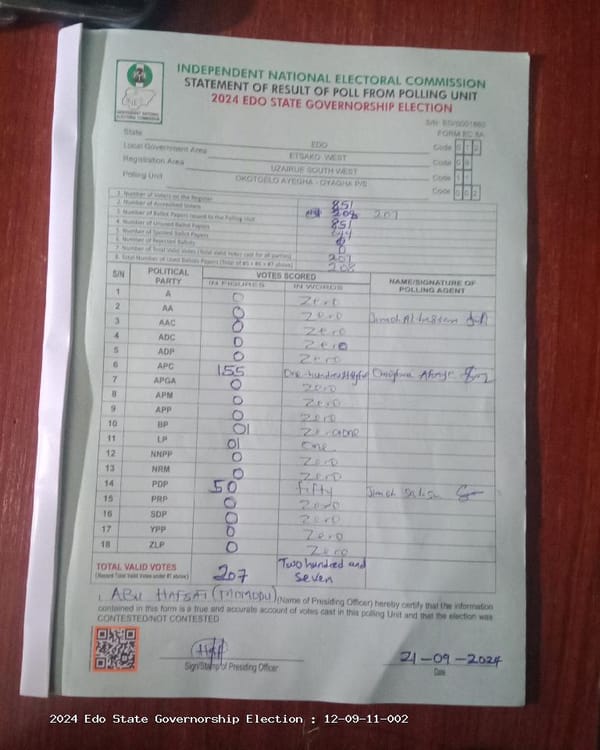 INDEPENDENT NATIONAL ELECTORAL COMMISSION
STATEMENT OF RESULT OF POLL FROM POLLING UNIT
2024 EDO STATE GOVERNORSHIP ELECTION
FORM EC 8A
State EDO Code
Local Government Area ETSAKO WEST Code
Registration Area UZAIRUE SOUTH WEST Code
Polling Unit OKOTOELO AYEGHA - OYAGHA P/S Code
1. Number of Voters on the Register 851
2. Number of Accredited Voters 208 207
3. Number of Ballot Papers Issued to the Polling Unit 851
4. Number of Unused Ballot Papers
5. Number of Spoiled Ballot Papers
6. Number of Rejected Ballots 0
7. Number of Total Valid Votes (Total Valid Votes cast for all parties) 207
8. Total Number of Used Ballot Papers 208
S/N POLITICAL PARTY VOTES SCORED NAME/SIGNATURE OF POLLING AGENT
IN FIGURES IN WORDS
1 A 0 Zero
2 AA 0 Zero
3 AAC 0 Zero
4 ADC 0 Zero
5 ADP 0 Zero
6 APC 155
7 APGA 0 Zero
8 APM 0 Zero
9 APP 0 Zero
10 BP 01
11 LP 01 One
12 NNPP 0 Zero
13 NRM 0 Zero
14 PDP 50 fifty
15 PRP 0 Zero
16 SDP 0 Zero
17 YPP 0 Zero
18 ZLP 0 Zero
TOTAL VALID VOTES 207 Two hundred and seven
I, ABU HAFSAT (Name of Presiding Officer) hereby certify that the information
contained in this form is a true and accurate account of votes cast in this polling Unit and that the election was
CONTESTED/NOT CONTESTED
21-09-2024
Sign/Stamp of Presiding Officer Date
2024 Edo State Governorship Election : 12-09-11-002